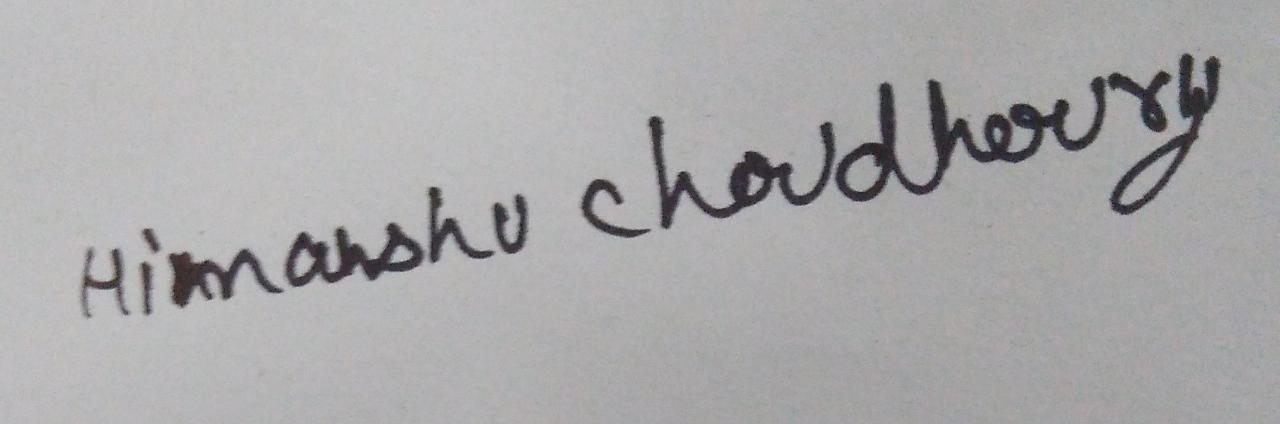 Himanshu choudhoury